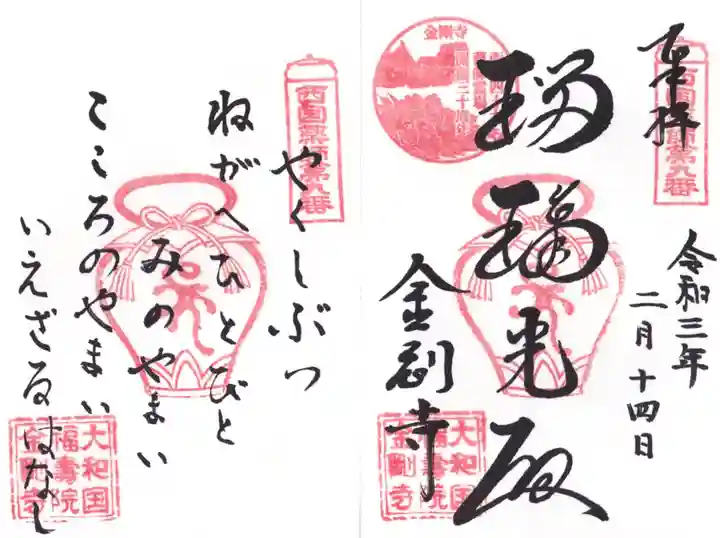 奉拝
西国薬師第九番
令和三年
二月十四日
金剛寺
瑠璃光殿
金剛寺
大和国
福寿院
金剛寺
西国薬師第九番
やくしぶつ
ねがへひとびと
みのやまい
こころのやまい
いえざるはなし
大和国
福寿院
金剛寺